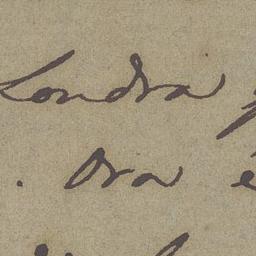 Londra
. Ora è